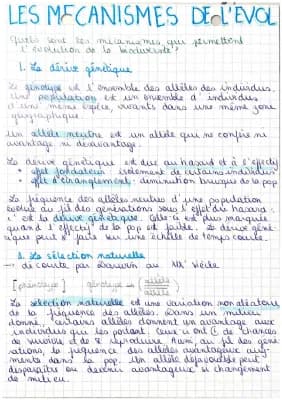 LES MECANISMES DE L'EVOL
Quels sont les mécanismes qui permettent
l'évolution de la biodiversité ?
1. La dérive génétique
Le génotype est l'ensemble des allèles des individus.
Une population est un ensemble d'individus
d'une même espèce, vivants dans une même zone
géographique.
Un allèle neutre est un allèle qui ne confère ni
avantage, ni désavantage.
La dérive génétique est due au hasard et à l'effectif
• effet fondateur : isolement de certains individus
• effet d'étranglement : diminution brusque de la pop
La fréquence des allèles neutres d'une population
évolue au fil des générations sous l'effet du hasard :
c'est la dérive génétique. Celle-ci est plus marquée
quand l'effectif de la pop est faible. La dérive géné-
tique peut se faire sur une échelle de temps courte.
2. La sélection naturelle
→ découverte par Darwin au XIXe siècle
[phénotype] génotype → (allèle
allèle)
La sélection naturelle est une variation non aléatoire
de la fréquence des allèles. Dans un milieu
donné, certains allèles donnent un avantage aux
individus qui les portent. Ceux-ci ont de chances
de survivre et de se reproduire. Ainsi, au fil des géné-
rations, la fréquence des allèles avantageux aug-
mente dans la pop. Un allèle défavorable peut
disparaître ou devenir avantageux si changement
de milieu.